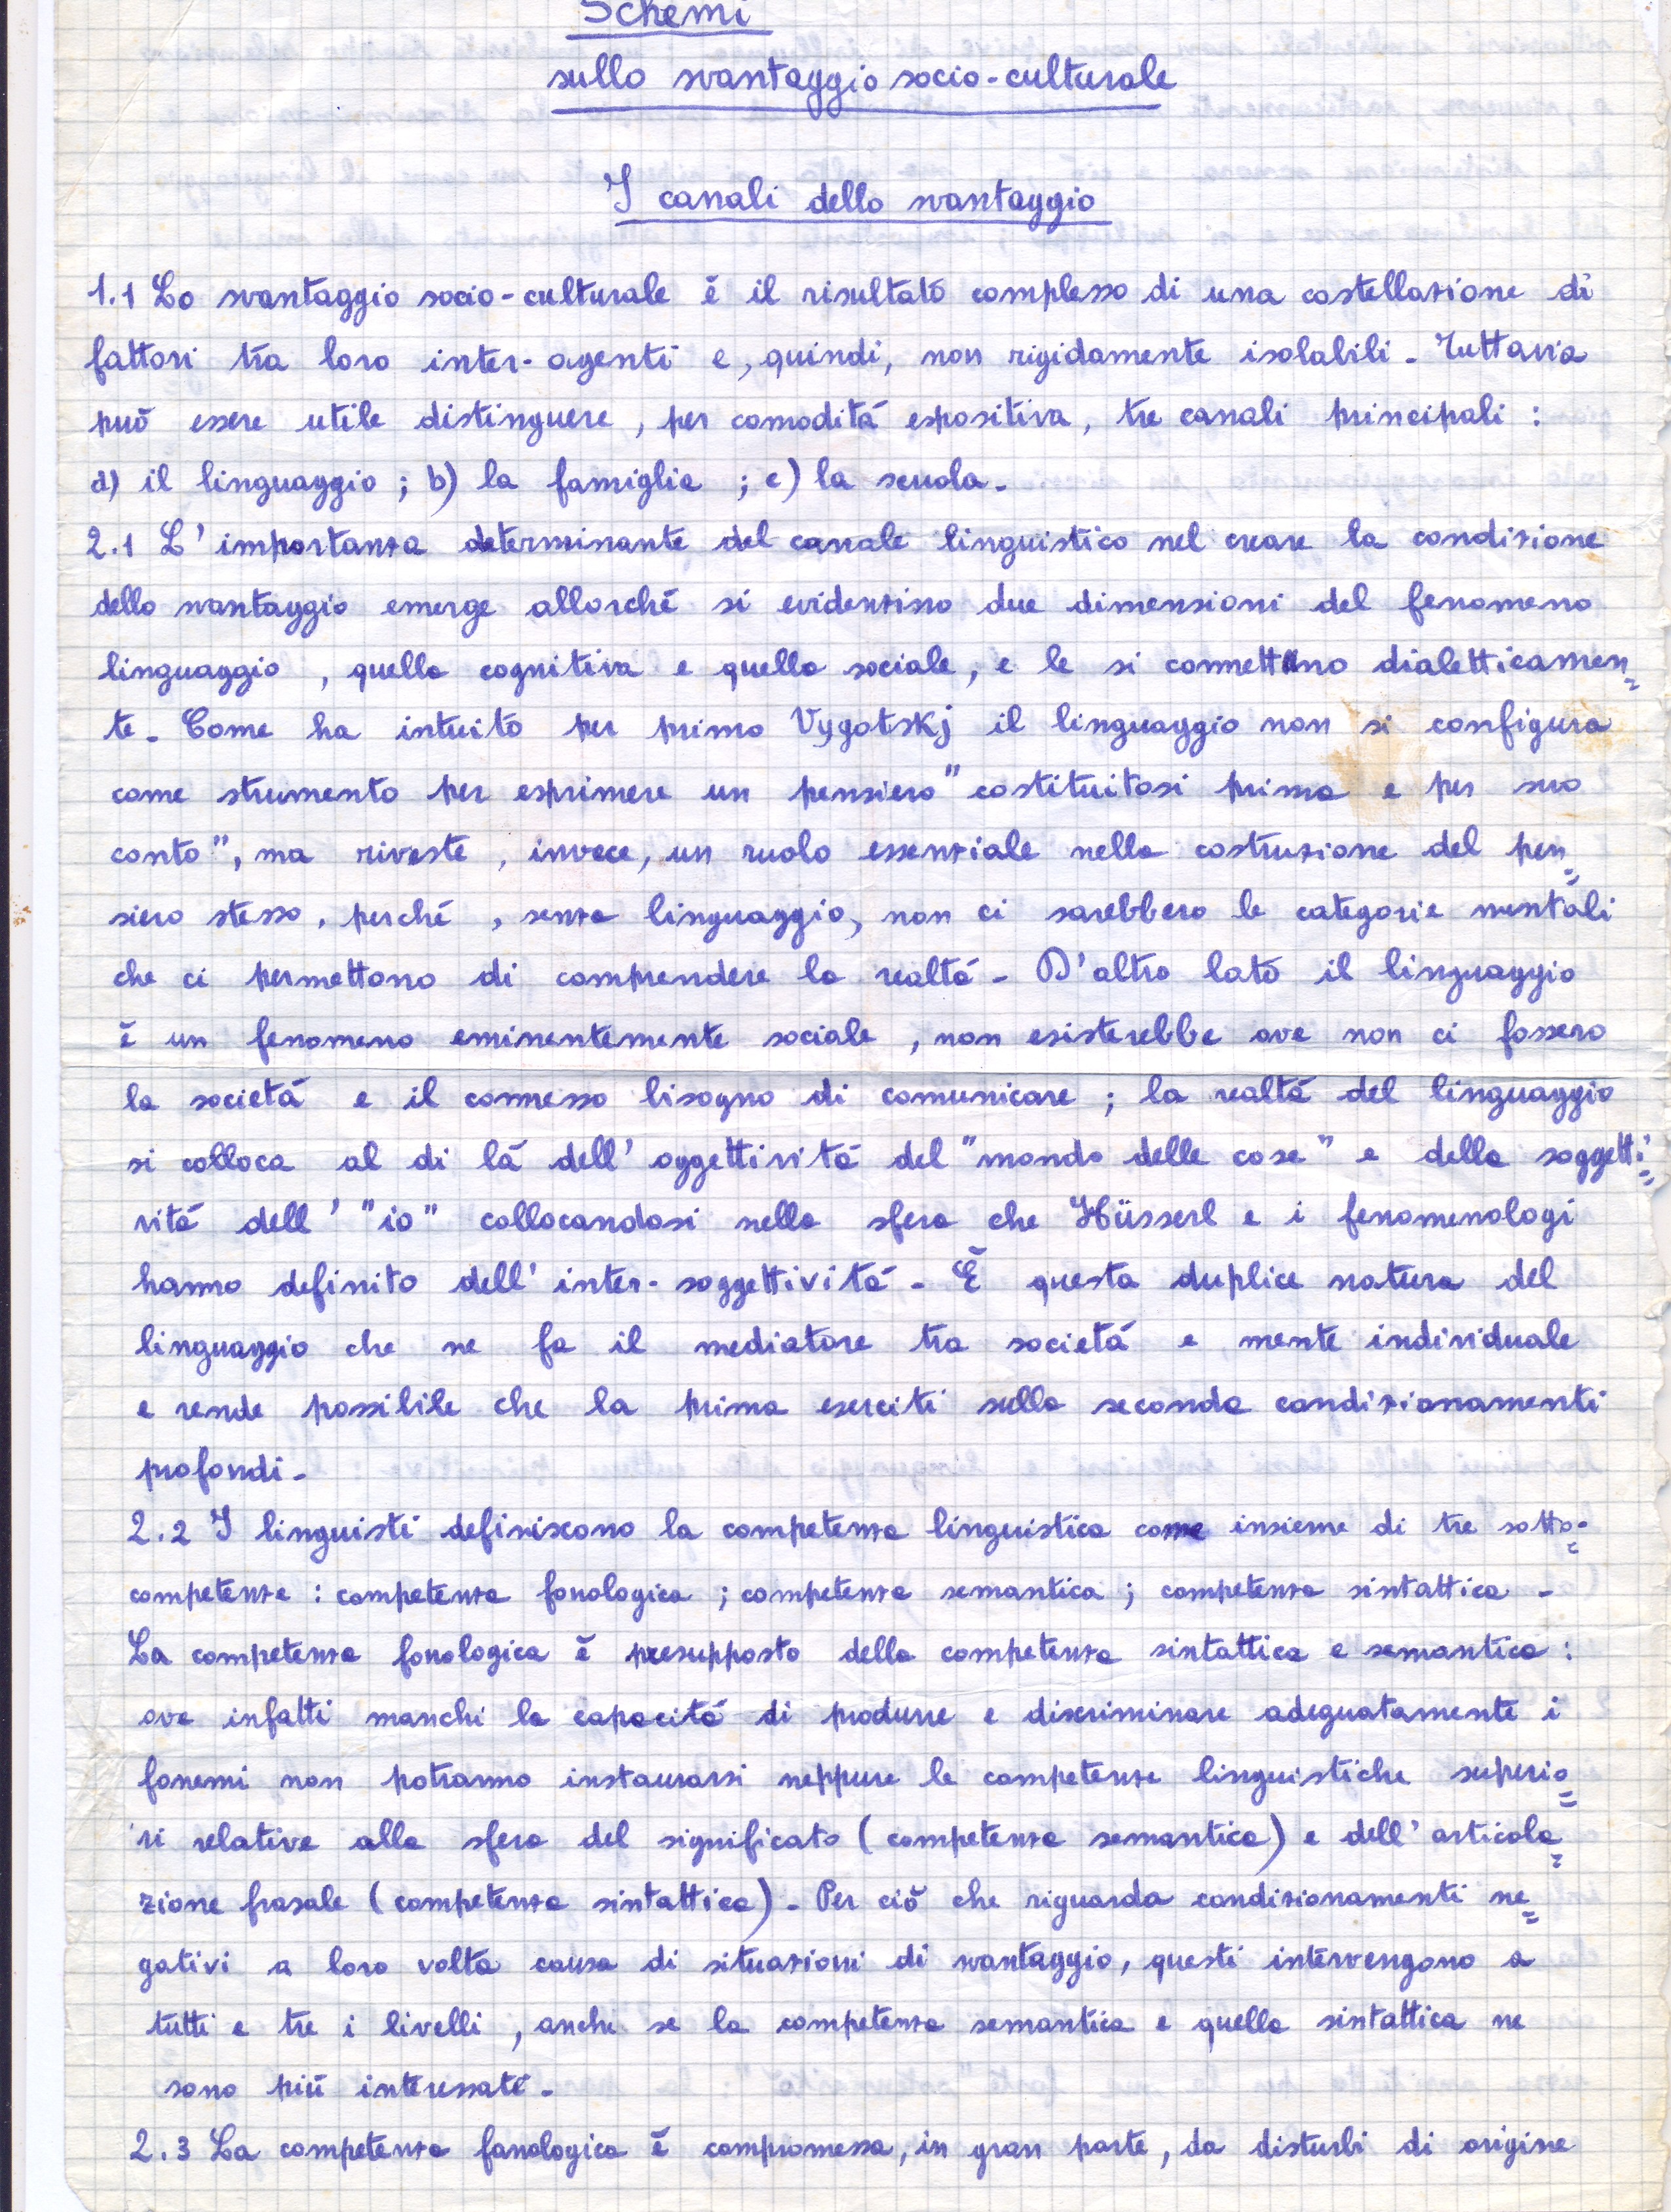 Schemi
sullo svantaggio socio-culturale
I canali dello svantaggio
1.1 Lo svantaggio socio-culturale è il risultato complesso di una costellazione di
fattori tra loro inter-agenti e, quindi, non rigidamente isolabili. Tuttavia
può essere utile distinguere, per comodità espositiva, tre canali principali :
a) il linguaggio ; b) la famiglia ; c) la scuola.
2.1 L'importanza determinante del canale linguistico nel creare la condizione
dello svantaggio emerge allorché si evidenzino due dimensioni del fenomeno
linguaggio , quella cognitiva e quella sociale, e le si connettano dialetticamen=
te. Come ha intuito per primo Vygotskj il linguaggio non si configura
come strumento per esprimere un pensiero "costituitosi prima e per suo
conto", ma riveste , invece, un ruolo essenziale nella costruzione del pen=
siero stesso, perché , senza linguaggio, non ci sarebbero le categorie mentali
che ci permettono di comprendere la realtà. D'altro lato il linguaggio
è un fenomeno eminentemente sociale , non esisterebbe ove non ci fossero
la società e il connesso bisogno di comunicare ; la realtà del linguaggio
si colloca al di là dell' oggettività del "mondo delle cose" e della soggetti=
vità dell' "io" collocandosi nella sfera che Hüsserl e i fenomenologi
hanno definito dell' inter-soggettività. È questa duplice natura del
linguaggio che ne fa il mediatore tra società e mente individuale
e rende possibile che la prima eserciti sulla seconda condizionamenti
profondi.
2.2 I linguisti definiscono la competenza linguistica come insieme di tre sotto=
competenze : competenza fonologica ; competenza semantica ; competenza sintattica .
La competenza fonologica è presupposto della competenza sintattica e semantica :
ove infatti manchi la capacità di produrre e discriminare adeguatamente i
fonemi non potranno instaurarsi neppure le competenze linguistiche superio=
ri relative alla sfera del significato (competenza semantica) e dell' articola=
zione frasale (competenza sintattica). Per ciò che riguarda condizionamenti ne=
gativi a loro volta causa di situazioni di svantaggio, questi intervengono a
tutti e tre i livelli , anche se la competenza semantica e quella sintattica ne
sono più interessate.
2.3 La competenza fonologica è compromessa, in gran parte, da disturbi di origine